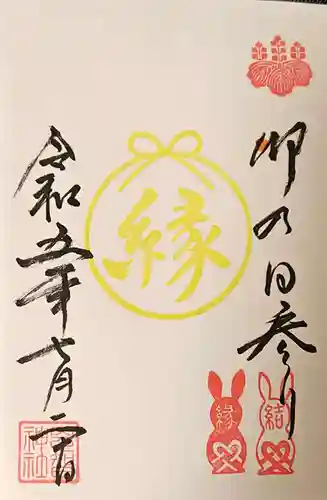 卯の日参り
縁
縁
結
令和五年七月二十日
神社